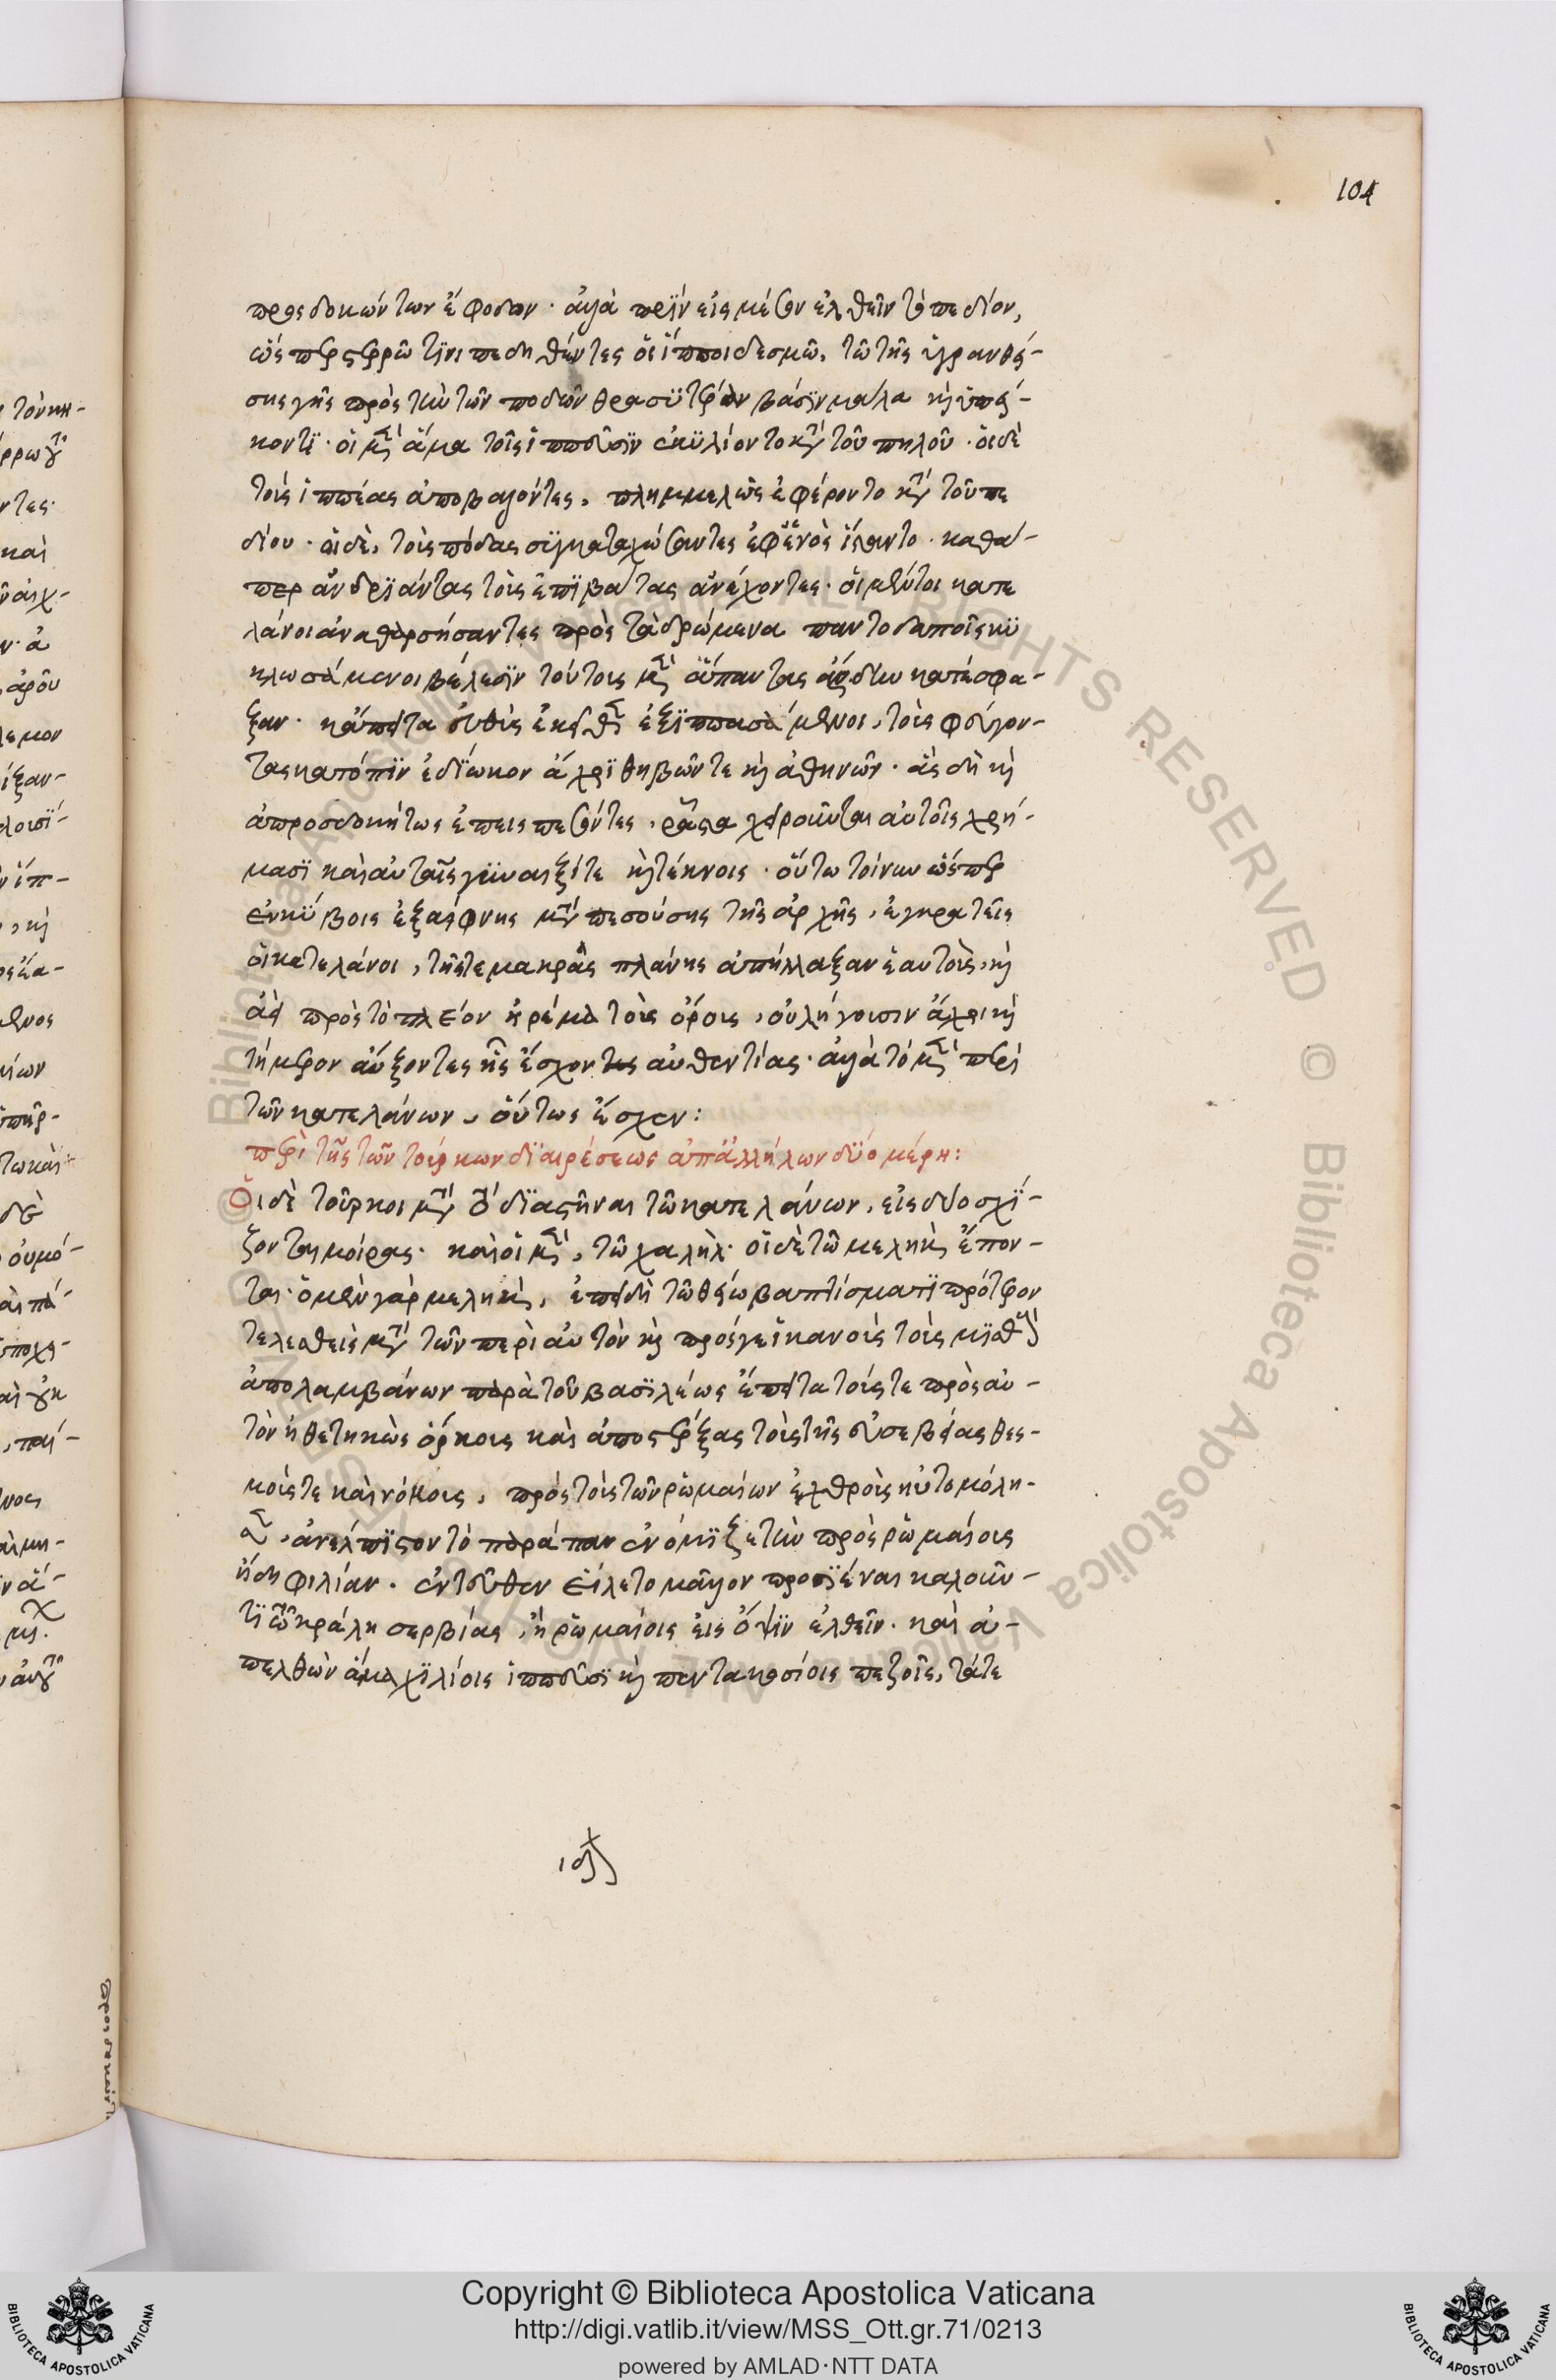 104
προσδοκώντων ἔφοδον · ἀλλὰ πρὶν εἰς μέσον ἐλθεῖν τὸ πεδίον,
ὥσπερ στερρῶ τινι πεδηθέντες οἱ ἵπποι δεσμῶ, τῶ τῆς ὑγρανθεί-
σης γῆς πρὸς τὴν τῶν ποδῶν θρασυτέραν βάσιν μάλα κỳ ὑπεί-
κοντι · οἱ μὲν ἅμα τοῖς ἱππεῦσιν ἐκυλίοντο κατὰ τοῦ πηλοῦ · οἱ δὲ
τοὺς ἱππέας ἀποβαλόντες, πλημμελῶς ἐφέροντο κατὰ τοῦ πε
δίου · οἱ δὲ, τοὺς πόδας συγκαταχώσαντες ἐφενὸς ἵσταντο · καθά-
περ ἀνδριάντας τοὺς ἐπιβάτας ἀνέχοντες · οἱ μέντοι κατε
λάνοι ἀναθαρσήσαντες πρὸς τὰ δρώμενα παντοδαποῖς κυ
κλωσάμενοι βέλεσιν τούτους μὲν ἅπαντας ἄρδην κατέσφα-
ξαν · κἄπειτα εὐθὺς ἐκεῖθεν ἐξιππασάμενοι, τοὺς φεύγον-
τας κατόπιν ἐδίωκον ἄχρι θηβῶν τε καὶ ἀθηνῶν · ἃς δὴ καὶ
ἀπροσδοκήτως ἐπεισπεσόντες, ρᾶστα χειροῦνται αὐτοῖς χρή-
μασι καὶ αὐταῖς γυναιξί τε καὶ τέκνοις · οὕτω τοίνυν ὥσπερ
ἐν κύβοις ἐξαίφνης μεταπεσούσης τῆς ἀρχῆς, ἐγκρατεῖς
οἱ κατελάνοι, τῆς τε μακρᾶς πλάνης ἀπήλλαξαν ἑαυτοὺς, καὶ
ἀεὶ πρὸς τὸ πλέον ἠρέμα τοὺς ὅρους, οὐ λήγουσιν ἄχρι καὶ
τήμερον αὔξοντες ἧς ἔσχον τῆς αὐθεντίας · ἀλλὰ τὸ μὲν περὶ
τῶν κατελάνων, οὕτως ἔσχεν :
περὶ τῆς τῶν τούρκων διαιρέσεως ἀπ ἀλλήλων δύο μέρη :
Οἱ δὲ τοῦρκοι μετὰ τὸ διαστῆναι τῶ κατελάνων, εἰς δύο σχί-
ζονται μοίρας · καὶ οἱ μὲν, τῶ χαλὴλ · οἱ δὲ τῶ μελὴκ ἕπον-
ται · ὁ μὲν γὰρ μελὴκ, ἐπειδὴ τῶ θείω βαπτίσματι πρότερον
τελεσθεὶς μετὰ τῶν περὶ αὐτὸν καὶ πρός γε ἱκανοὺς τοὺς μισθοὺς
ἀπολαμβάνων παρὰ τοῦ βασιλέως ἔπειτα τούς τε πρὸς αὐ-
τὸν ἠθετηκὼς ὅρκους καὶ ἀποστέρξας τοὺς τῆς εὐσεβείας θεσ-
μούς τε καὶ νόμους, πρὸς τοὺς τῶν ρωμαίων ἐχθροὺς ηὐτομόλη-
σεν, ἀνέλπιστον τὸ παράπαν ἐνόμιζε τὴν πρὸς ρωμαίους
ἤδη φιλίαν · ἐντεῦθεν εἵλετο μᾶλλον προσιέναι καλοῦν-
τι τῶ κράλη σερβίας, ἢ ρωμαίοις εἰς ὄψιν ἐλθεῖν · καὶ ἀ-
πελθὼν ἅμα χιλίοις ἱππεῦσι καὶ πεντακοσίοις πεζοῖς, τά τε
Copyright © Biblioteca Apostolica Vaticana
http://digi.vatlib.it/view/MSS_Ott.gr.71/0213
powered by AMLAD·NTT DATA